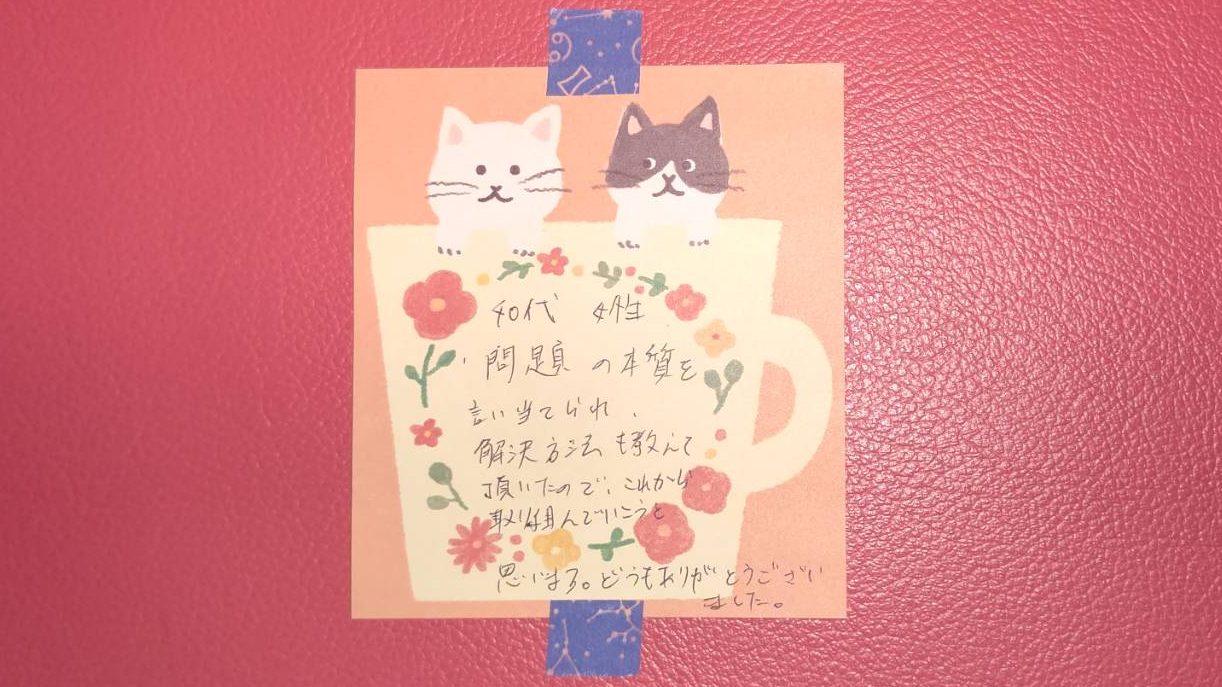 40代 女性
問題の本質を
言い当てられ、
解決方法も教えて
頂いたので、これから
取り組んでいこうと
思います。どうもありがとうござい
ました。